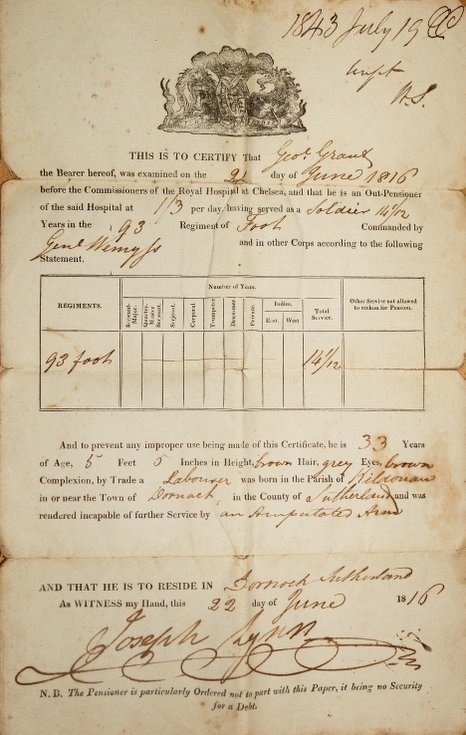 1843 July 19
THIS IS TO CERTIFY That Geo: Grant
the Bearer hereof, was examined on the 21 day of June 1816
before the Commissioners of the Royal Hospital at Chelsea, and that he is an Out-Pensioner
of the said Hospital at 1/3 per day, having served as a Soldier 14 7/12
Years in the 93 Regiment of Foot Commanded by
Genl Wemyss and in other Corps according to the following
Statement.
REGIMENTS.
Number of Years.
Serjeant-Major.
Quarter-Master Serjeant.
Serjeant.
Corporal.
Trumpeter.
Drummer.
Private.
Indies.
East. West
Total Service.
Other Service not allowed
to reckon for Pension.
93 foot 14 7/12
And to prevent any improper use being made of this Certificate, he is 33 Years
of Age, 5 Feet 6 Inches in Height, brown Hair, grey Eyes, brown
Complexion, by Trade a Labourer was born in the Parish of Kildonan
in or near the Town of Dornoch in the County of Sutherland and was
rendered incapable of further Service by an Amputated Arm
AND THAT HE IS TO RESIDE IN Dornoch Sutherland
As WITNESS my Hand, this 22 day of June 1816
Joseph Lynn
N. B. The Pensioner is particularly Ordered not to part with this Paper, it being no Security
for a Debt.